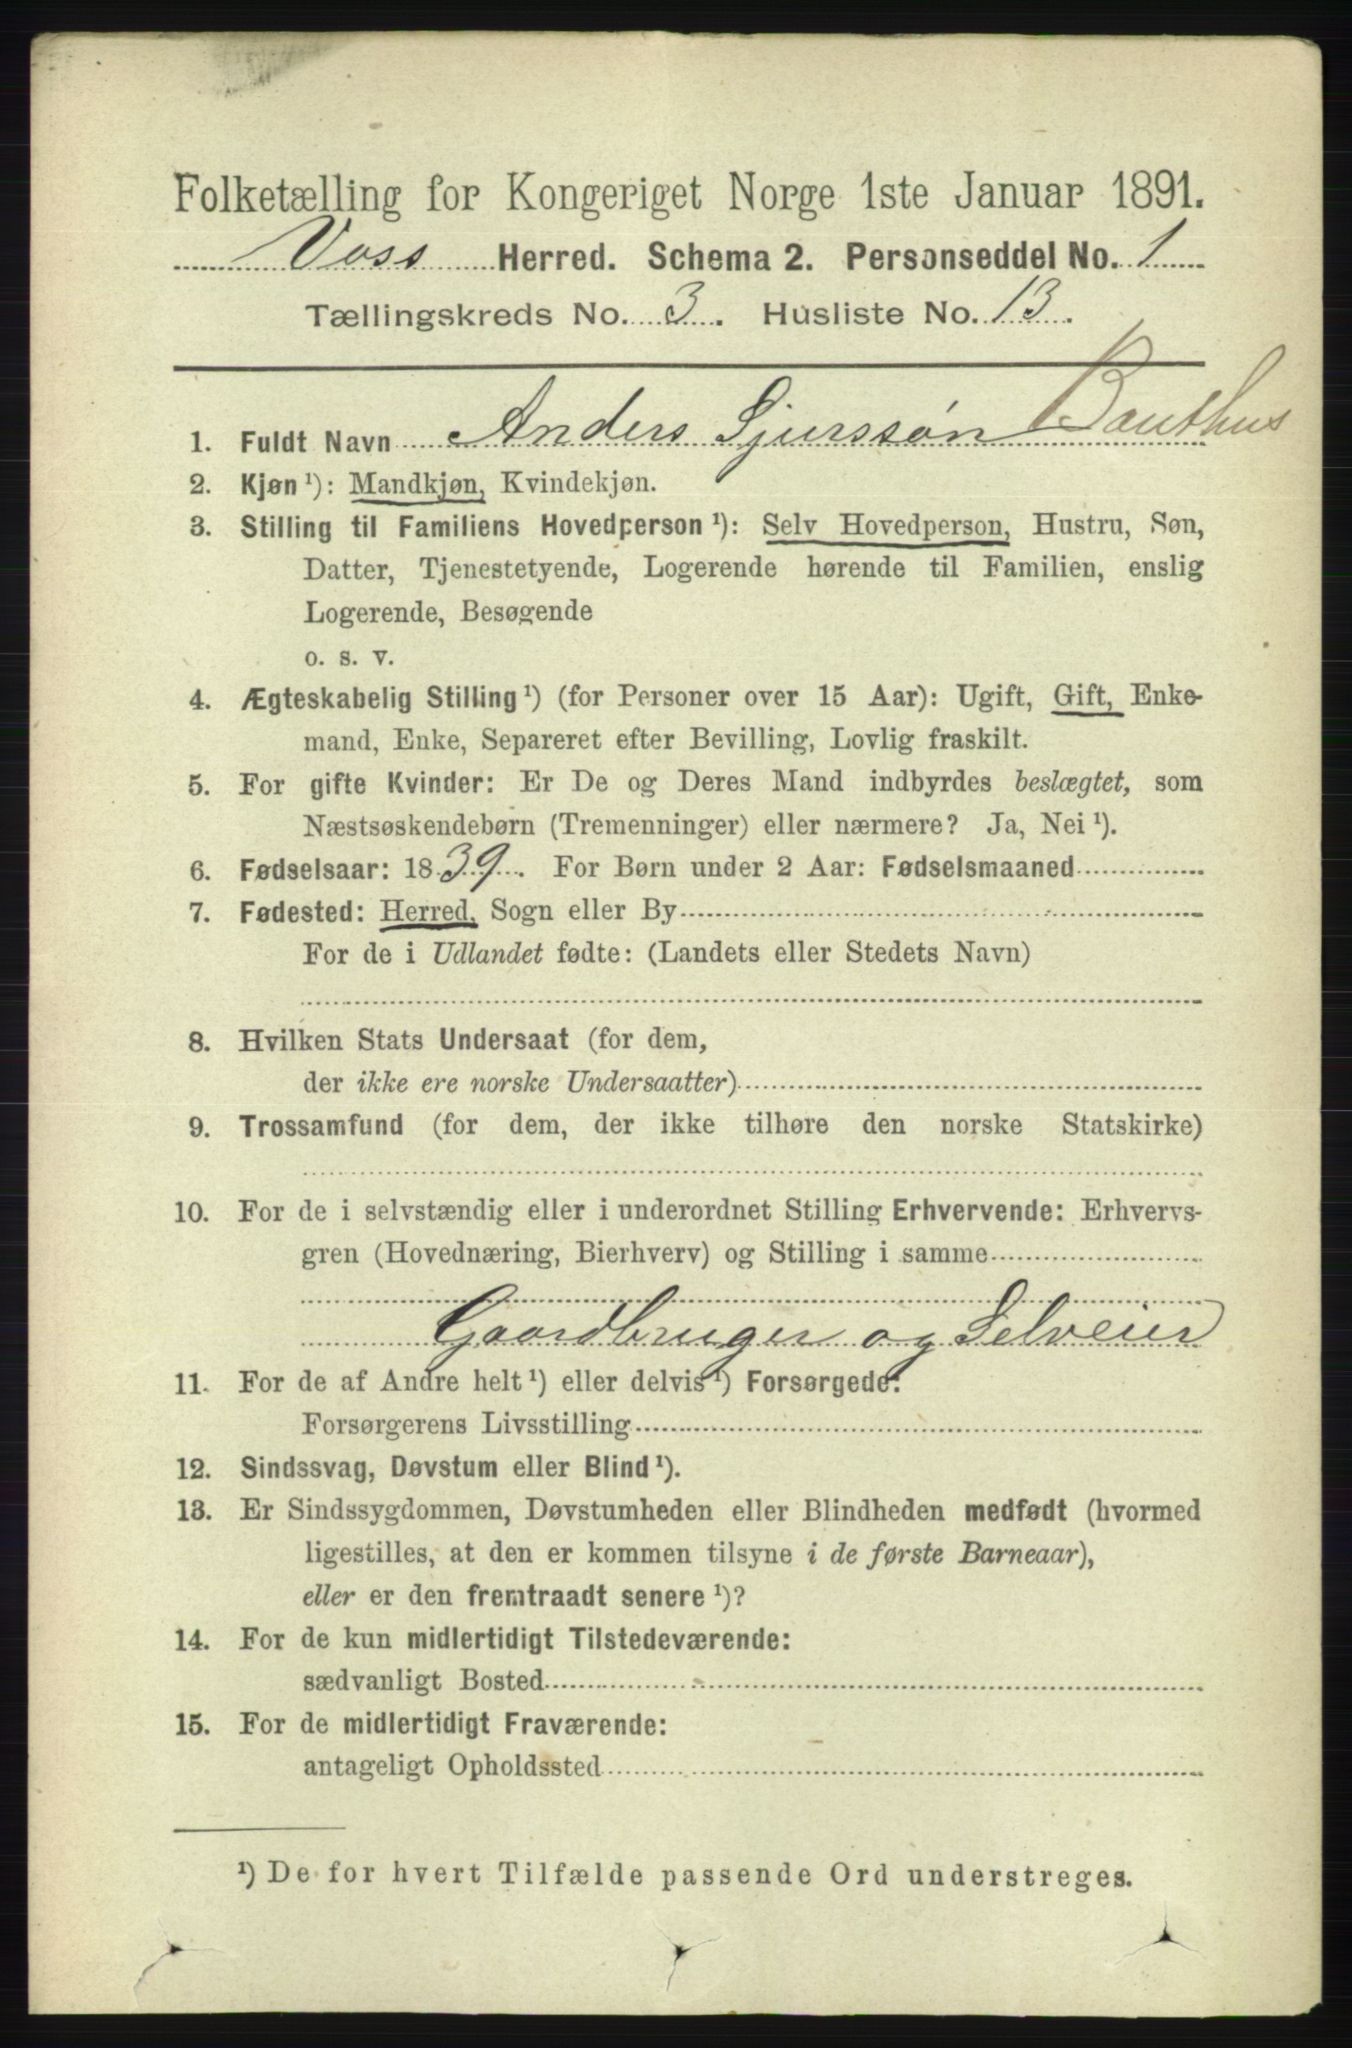 Folketælling for Kongeriget Norge 1ste Januar 1891.
Voss Herred. Schema 2. Personseddel No. 1
Tællingskreds No. 3. Husliste No. 13.
1. Fuldt Navn Anders Sjurssøn
2. Kjøn ¹): Mandkjøn, Kvindekjøn.
3. Stilling til Familiens Hovedperson ¹): Selv Hovedperson, Hustru, Søn,
Datter, Tjenestetyende, Logerende hørende til Familien, enslig
Logerende, Besøgende
o. s. v.
4. Ægteskabelig Stilling ¹) (for Personer over 15 Aar): Ugift, Gift, Enke-
mand, Enke, Separeret efter Bevilling, Lovlig fraskilt.
5. For gifte Kvinder: Er De og Deres Mand indbyrdes beslægtet, som
Næstsøskendebørn (Tremenninger) eller nærmere? Ja, Nei ¹).
6. Fødselsaar: 1839. For Børn under 2 Aar: Fødselsmaaned
7. Fødested: Herred, Sogn eller By
For de i Udlandet fødte: (Landets eller Stedets Navn)
8. Hvilken Stats Undersaat (for dem,
der ikke ere norske Undersaatter)
9. Trossamfund (for dem, der ikke tilhøre den norske Statskirke)
10. For de i selvstændig eller i underordnet Stilling Erhvervende: Erhvervs-
gren (Hovednæring, Bierhverv) og Stilling i samme
Gaardbruger og Selveier
11. For de af Andre helt ¹) eller delvis ¹) Forsørgede:
Forsørgerens Livsstilling
12. Sindssvag, Døvstum eller Blind ¹).
13. Er Sindssygdommen, Døvstumheden eller Blindheden medfødt (hvormed
ligestilles, at den er kommen tilsyne i de første Barneaar),
eller er den fremtraadt senere ¹)?
14. For de kun midlertidigt Tilstedeværende:
sædvanligt Bosted
15. For de midlertidigt Fraværende:
antageligt Opholdssted
¹) De for hvert Tilfælde passende Ord understreges.